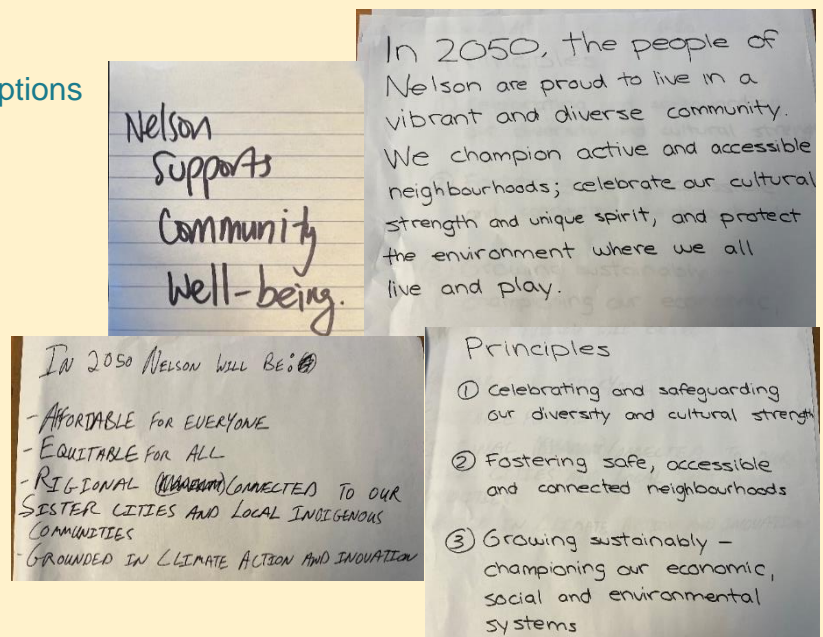 ptions
Nelson
Supports
Community
Well-being.
In 2050, the people of
Nelson are proud to live in a
vibrant and diverse community.
We champion active and accessible
neighbourhoods; celebrate our cultural
strength and unique spirit, and protect
the environment where we all
live and play.
IN 2050 NELSON WILL BE:
- AFFORTABLE FOR EVERYONE
- EQUITABLE FOR ALL
- RIGIONAL CONNECTED TO OUR
SISTER CITIES AND LOCAL INDIGENOUS
COMMUNITIES
- GROUNDED IN CLIMATE ACTION AND INOVATION
Principles
① Celebrating and safeguarding
our diversity and cultural strength
② Fostering safe, accessible
and connected neighbourhoods
③ Growing sustainably –
championing our economic,
social and environmental
systems